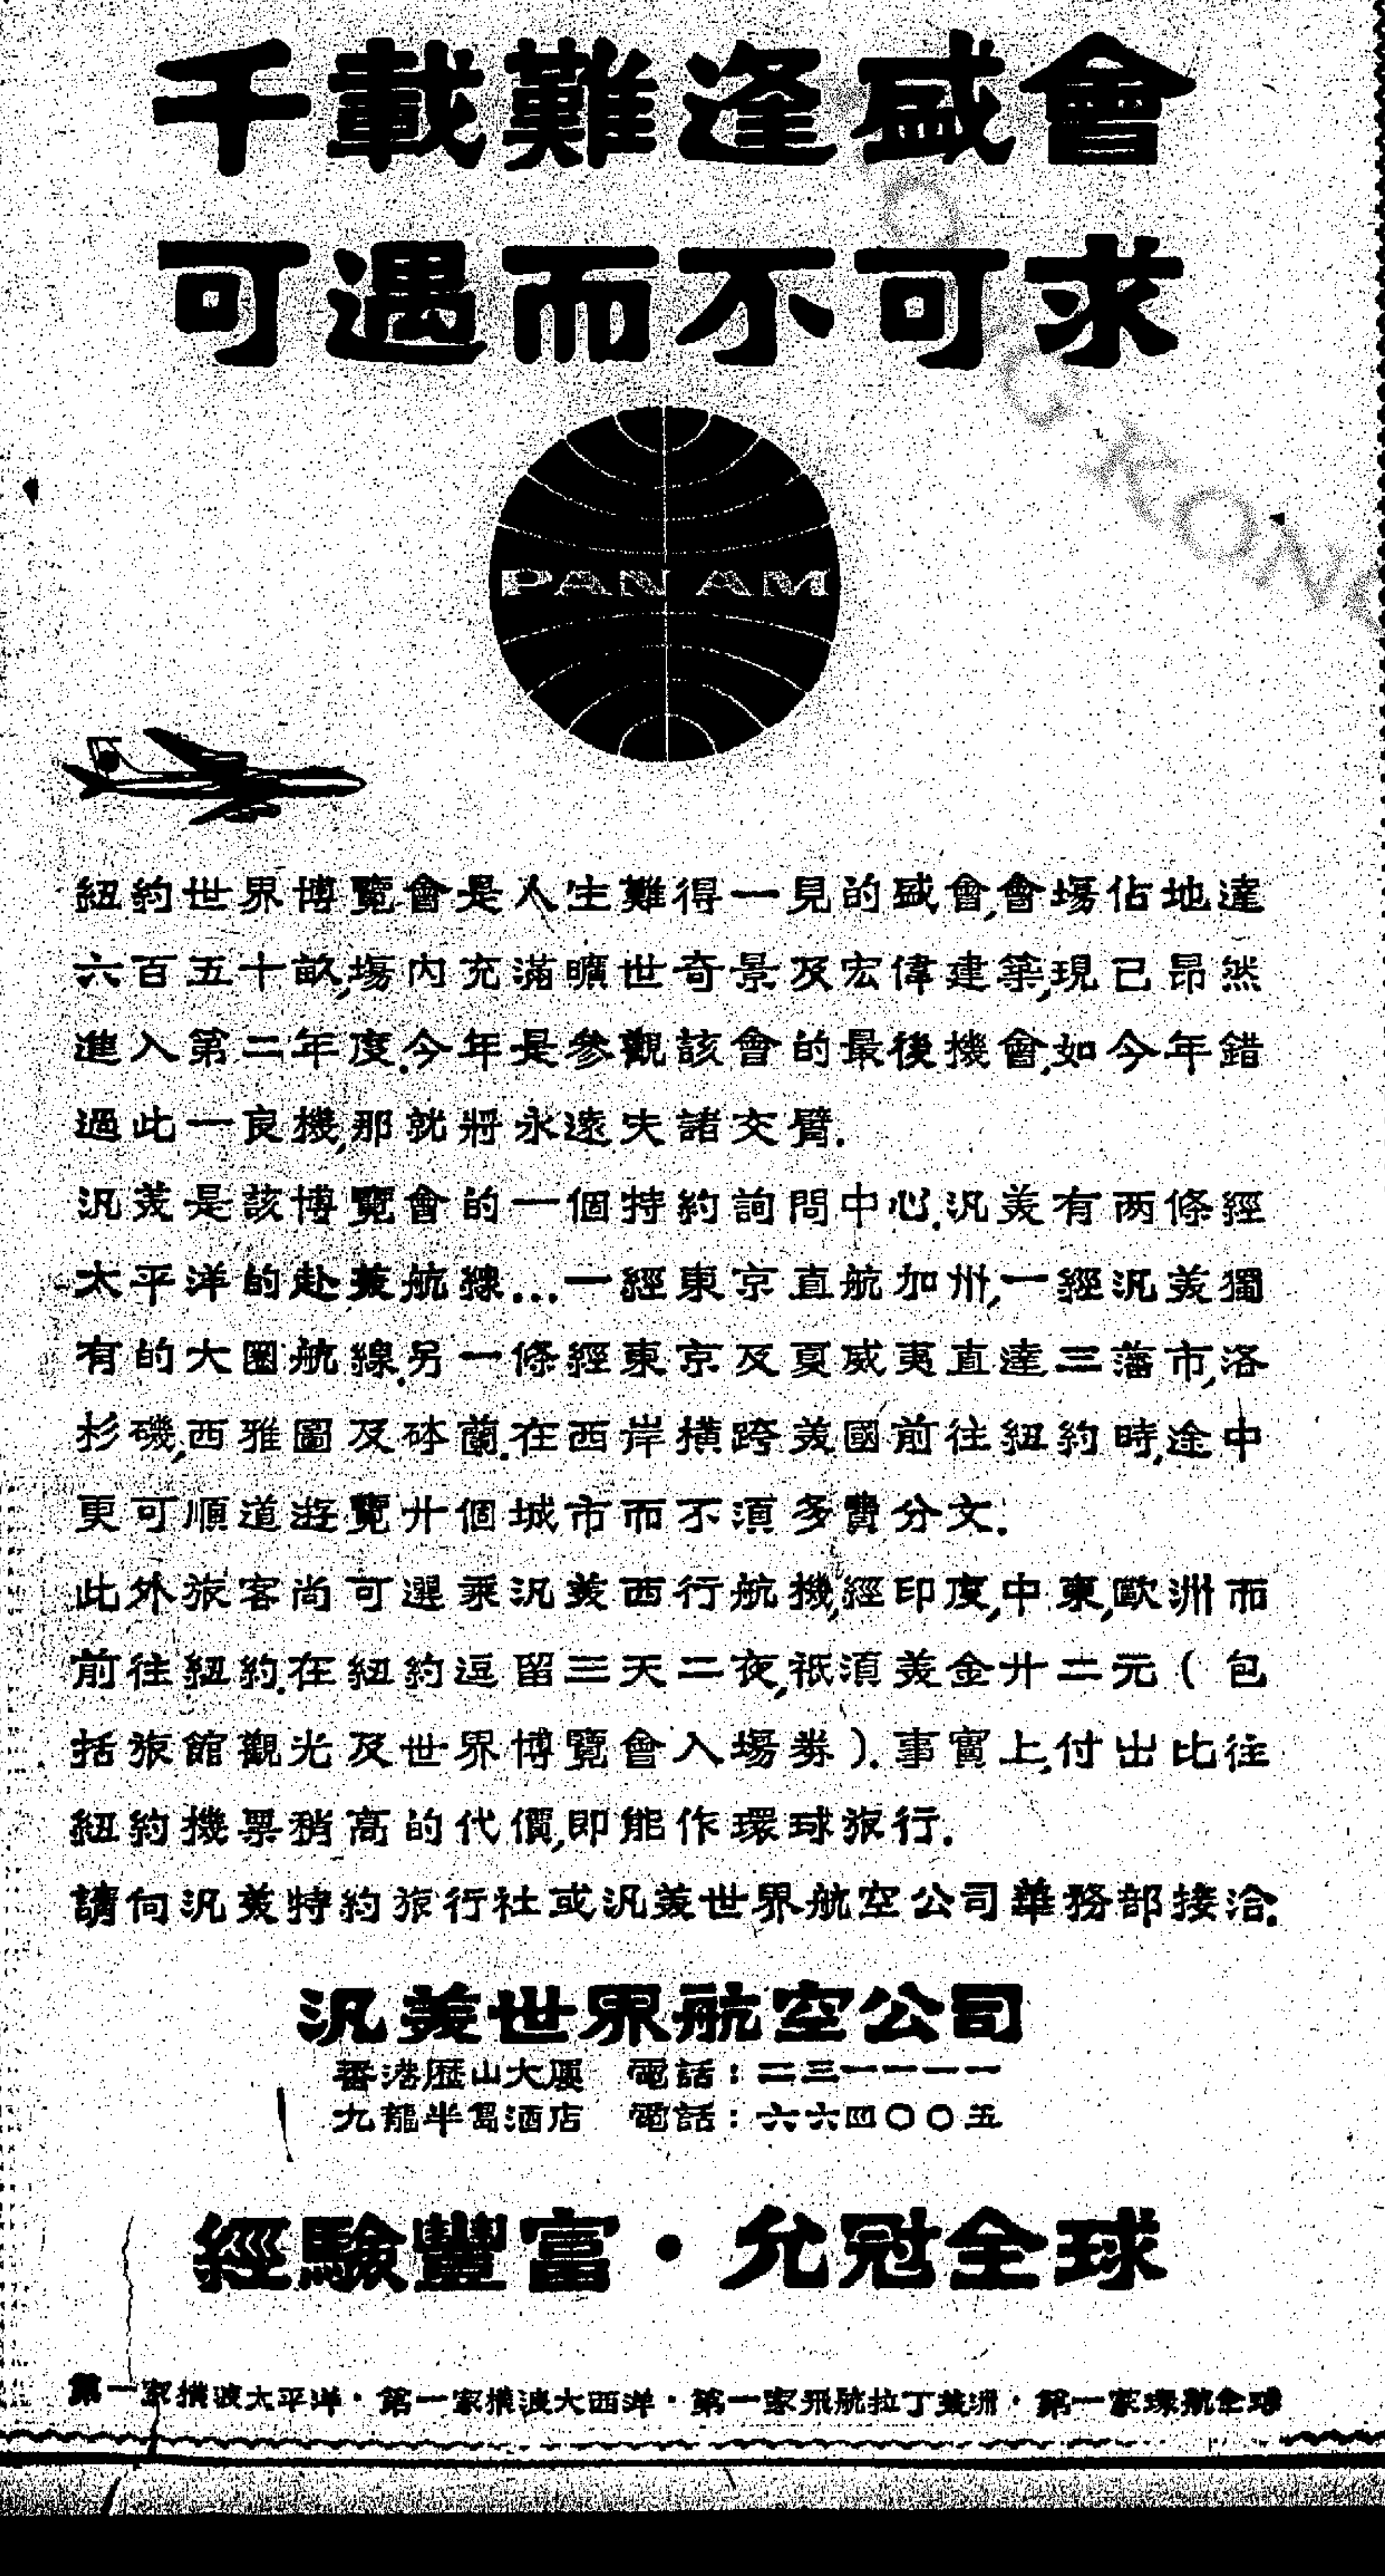 千載難逢盛會
可遇而不可求
PAN AM
紐約世界博覽會是人生難得一見的盛會,會場佔地達
六百五十畝,場内充滿曠世奇景及宏偉建築,現己昂然
進入第二年度.今年是參觀該會的最後機會,如今年錯
過此一良機,那就將永遠失諸交臂.
汎美是該博覽會的一個持約詢問中心.汎美有两條經
太平洋的赴美航線...一經東京直航加州,一經汎美獨
有的大圈航線.另一條經東京及夏威夷直達三藩市,洛
杉磯,西雅圖及砵蘭.在西岸橫跨美國前往紐約時,途中
更可順道遊覽廿個城市而不須多費分文.
此外旅客尚可選乘汎美西行航機,經印度,中東,歐洲而
前往紐約.在紐約逗留三天二夜,祇須美金廿二元(包
括旅館觀光及世界博覽會入場券).事實上,付出比往
紐約機票稍高的代價,即能作環球旅行.
請向汎美特約旅行社或汎美世界航空公司華務部接洽.
汎美世界航空公司
香港歷山大廈 電話:二三一一一一
九龍半島酒店 電話:六六四〇〇五
經驗豐富・允冠全球
第一家橫渡太平洋・第一家橫渡大西洋・第一家飛航拉丁美洲・第一家環航全球